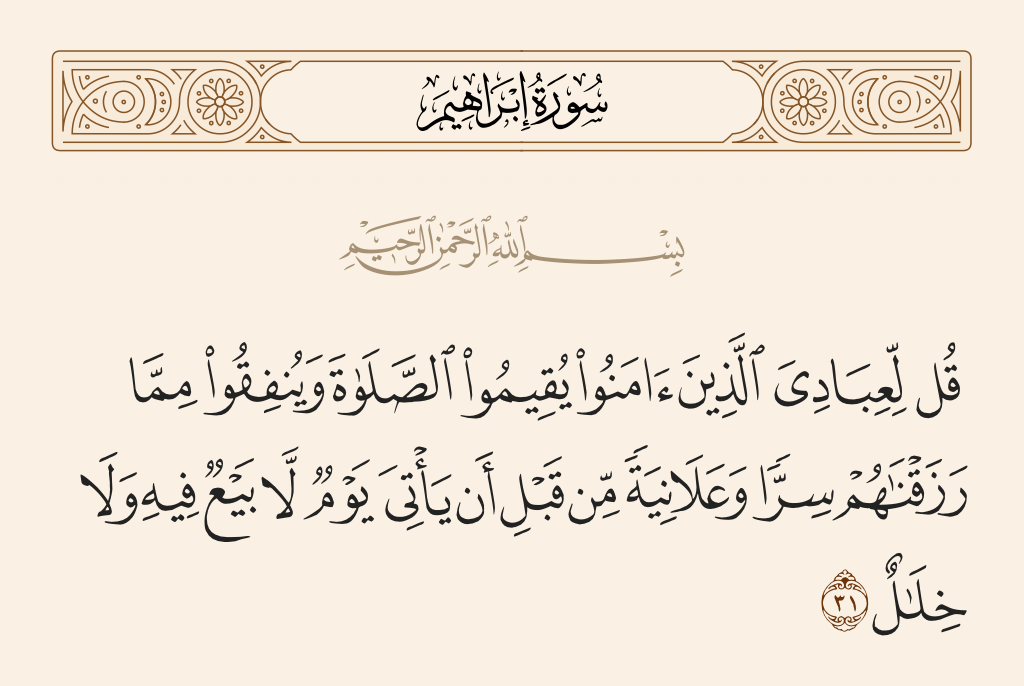 سُورَةُ إِبْرَاهِيمَ
بِسْمِ ٱللَّهِ ٱلرَّحْمَٰنِ ٱلرَّحِيمِ
قُل لِّعِبَادِىَ ٱلَّذِينَ ءَامَنُوا۟ يُقِيمُوا۟ ٱلصَّلَوٰةَ وَيُنفِقُوا۟ مِمَّا
رَزَقْنَٰهُمْ سِرًّا وَعَلَانِيَةً مِّن قَبْلِ أَن يَأْتِىَ يَوْمٌ لَّا بَيْعٌ فِيهِ وَلَا
خِلَٰلٌ ٣١